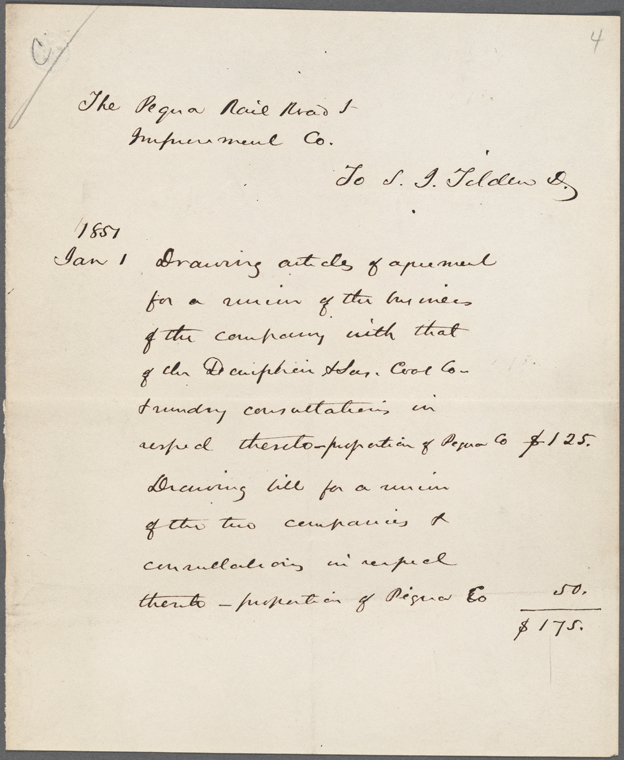 C
4
The Pequa Rail Road &
Improvement Co.
To S. J. Tilden Dr
1851
Jan 1 Drawing articles of agreement
for a union of the business
of the company with that
of the Dauphin & Sus. Coal Co-
& sundry consultations in
respect thereto - proportion of Pequa Co $125.
Drawing bill for a union
of the two companies &
consultations in respect
thereto - proportion of Pequa Co 50.
$175.